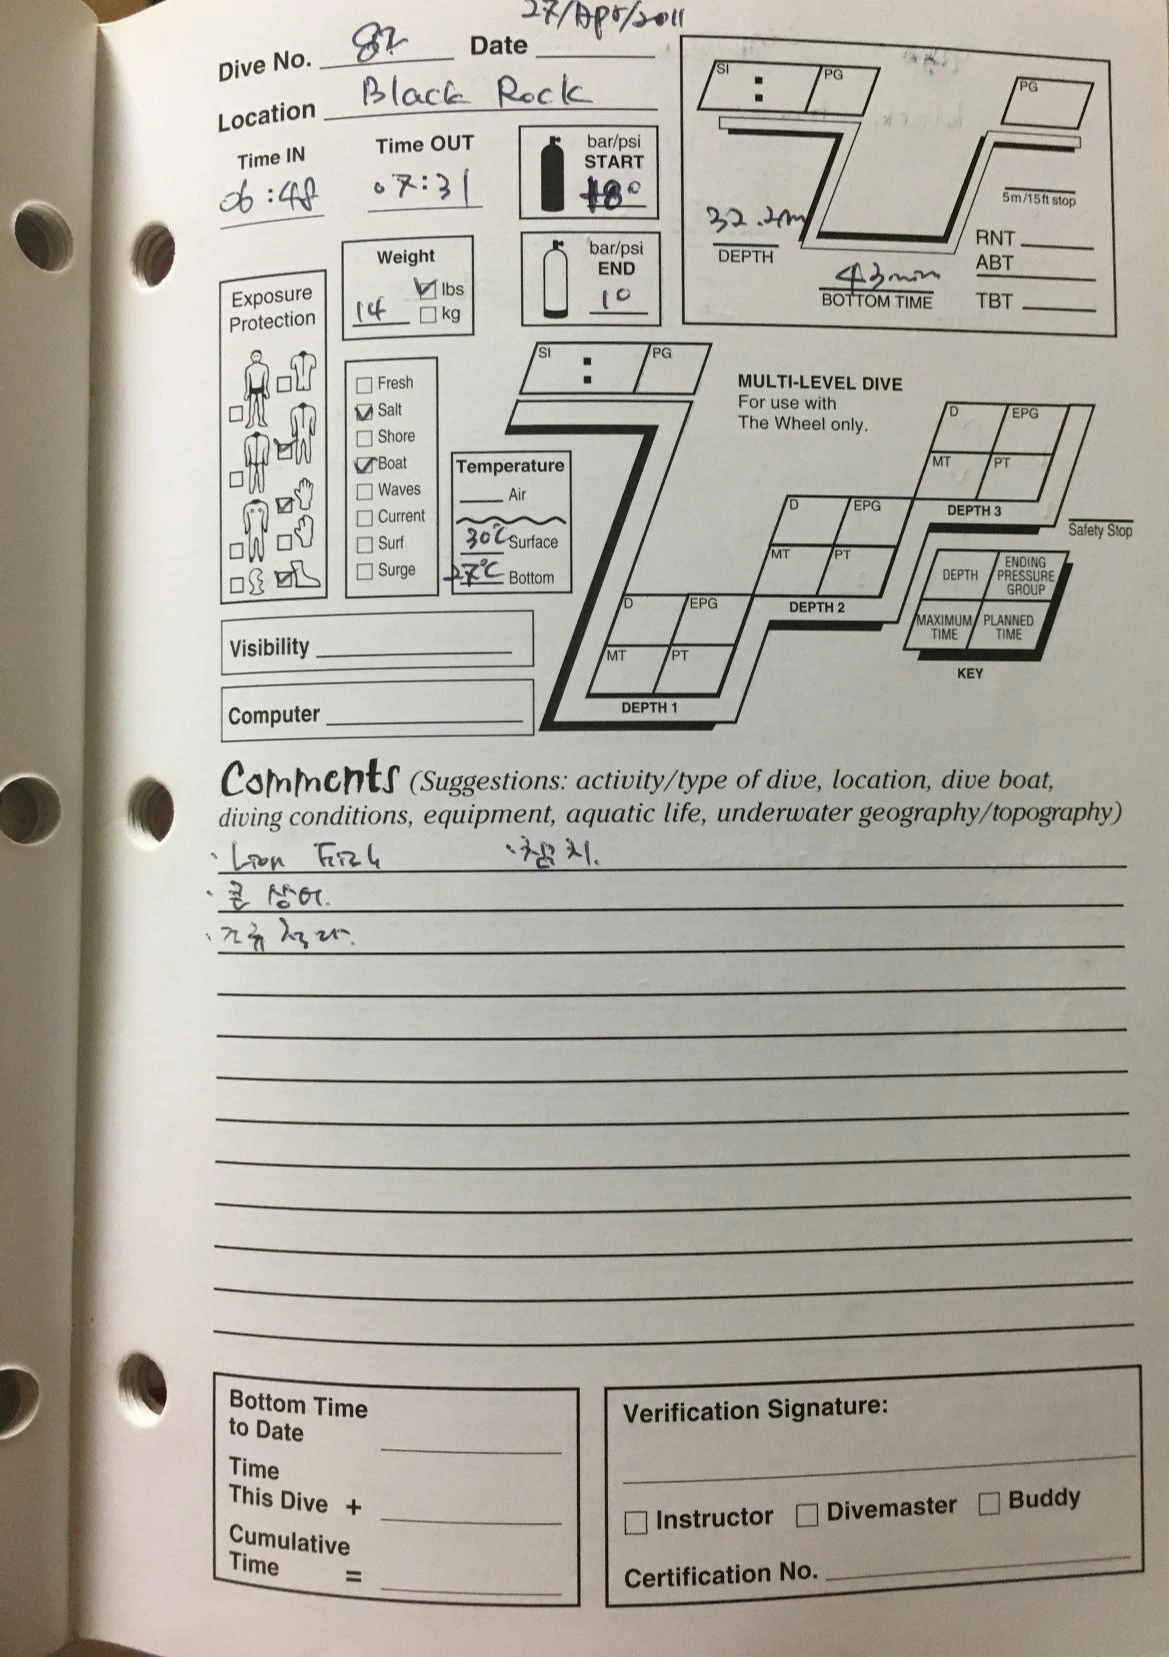 27/Apr/2011
Dive No. 82 Date
Location Black Rock
Time IN Time OUT
06:48 07:31
bar/psi
START
180
bar/psi
END
10
SI : PG
PG
5m/15ft stop
32.2m
DEPTH
43min
BOTTOM TIME
RNT
ABT
TBT
Weight
14 lbs
kg
Exposure
Protection
Fresh
Salt
Shore
Boat
Waves
Current
Surf
Surge
Temperature
Air
30℃ Surface
27℃ Bottom
Visibility
Computer
SI : PG
MULTI-LEVEL DIVE
For use with
The Wheel only.
D EPG
MT PT
DEPTH 1
D EPG
MT PT
DEPTH 2
D EPG
MT PT
DEPTH 3
Safety Stop
DEPTH ENDING
PRESSURE
GROUP
MAXIMUM PLANNED
TIME TIME
KEY
Comments (Suggestions: activity/type of dive, location, dive boat,
diving conditions, equipment, aquatic life, underwater geography/topography)
· Lion Fish · 참치.
· 곰 상어.
· 조류
Bottom Time
to Date
Time
This Dive +
Cumulative
Time =
Verification Signature:
Instructor Divemaster Buddy
Certification No.